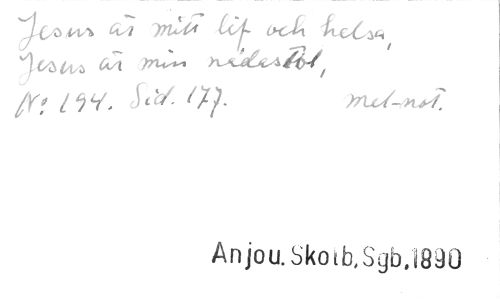 Jesus är mitt lif och helsa,
Jesus är min nådastol,
No 194. Sid. 177. mel-not.
Anjou. Skolb, Sgb, 1890